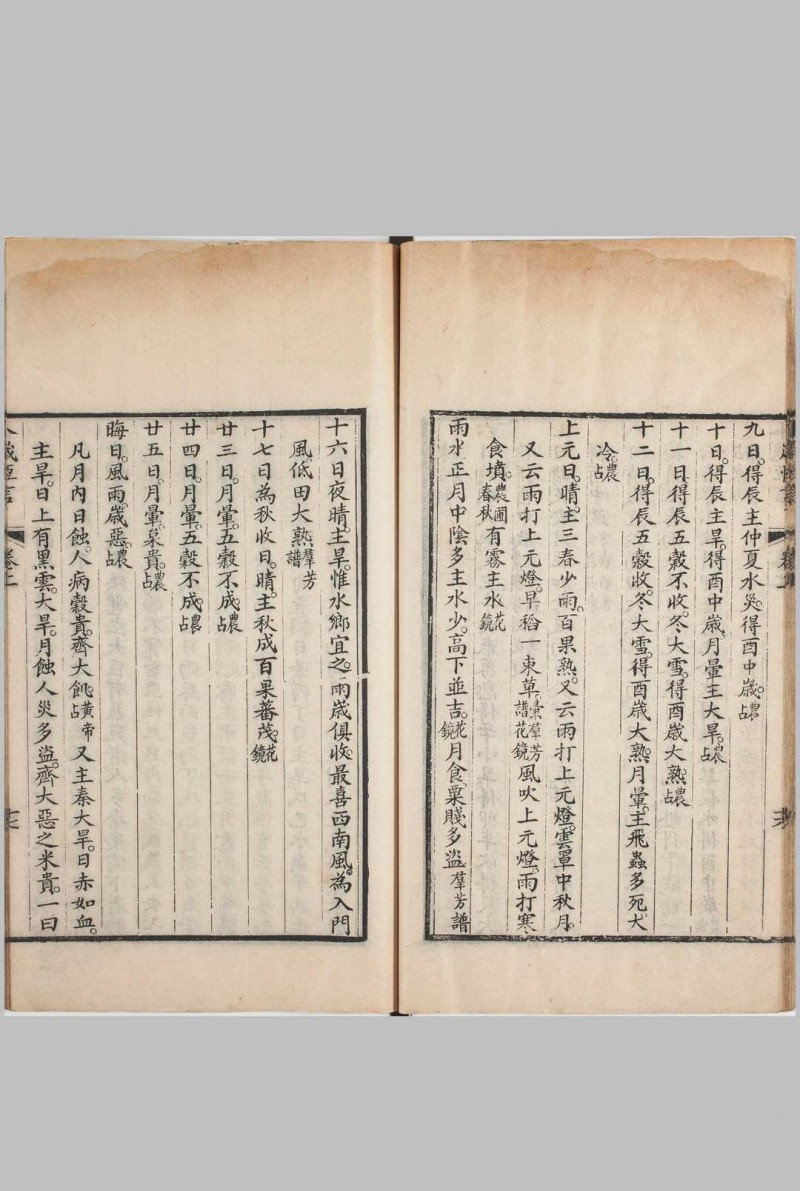 九日。得辰主仲夏水災。得酉中歲。農占
十日。得辰主旱。得酉中歲。月暈主大旱。農占
十一日。得辰五穀不收。冬大雪。得酉歲大熟。農占
十二日。得辰五穀收。冬大雪。得酉歲大熟。月暈。主飛蟲多死。犬
冷。農占
上元日。晴。主三春少雨。百果熟。又云雨打上元燈。雲罩中秋月。
又云雨打上元燈。早稻一束草。彙羣芳譜花鏡風吹上元燈。雨打寒
食墳。農圃春秋有霧主水花鏡
雨水正月中陰多主水少。高下並吉。花鏡月食。粟賤多盜。羣芳譜
十六日夜晴。主旱。惟水鄉宜之。雨歲俱收。最喜西南風。為入門
風。低田大熟羣芳譜
十七日為秋收日。晴。主秋成百果蕃茂。花鏡
廿三日。月暈。五穀不成。農占
廿四日。月暈。五穀不成。農占
廿五日。月暈。菜貴。農占
晦日。風雨。歲惡。農占
凡月內日蝕。人病穀貴。齊大飢。黃帝占又主秦大旱。日赤如血。
主旱。日上有黑雲。大旱。月蝕人災多盜。齊大惡之米貴。一曰
卷上